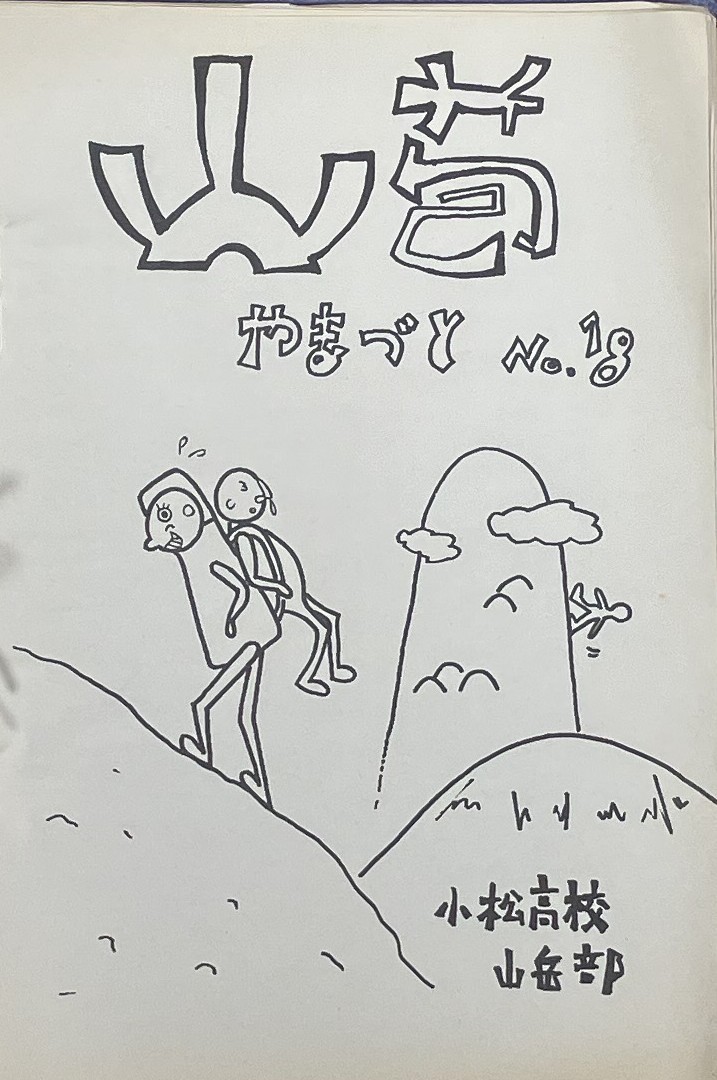 山苞
やまづと No.18
小松高校
山岳部